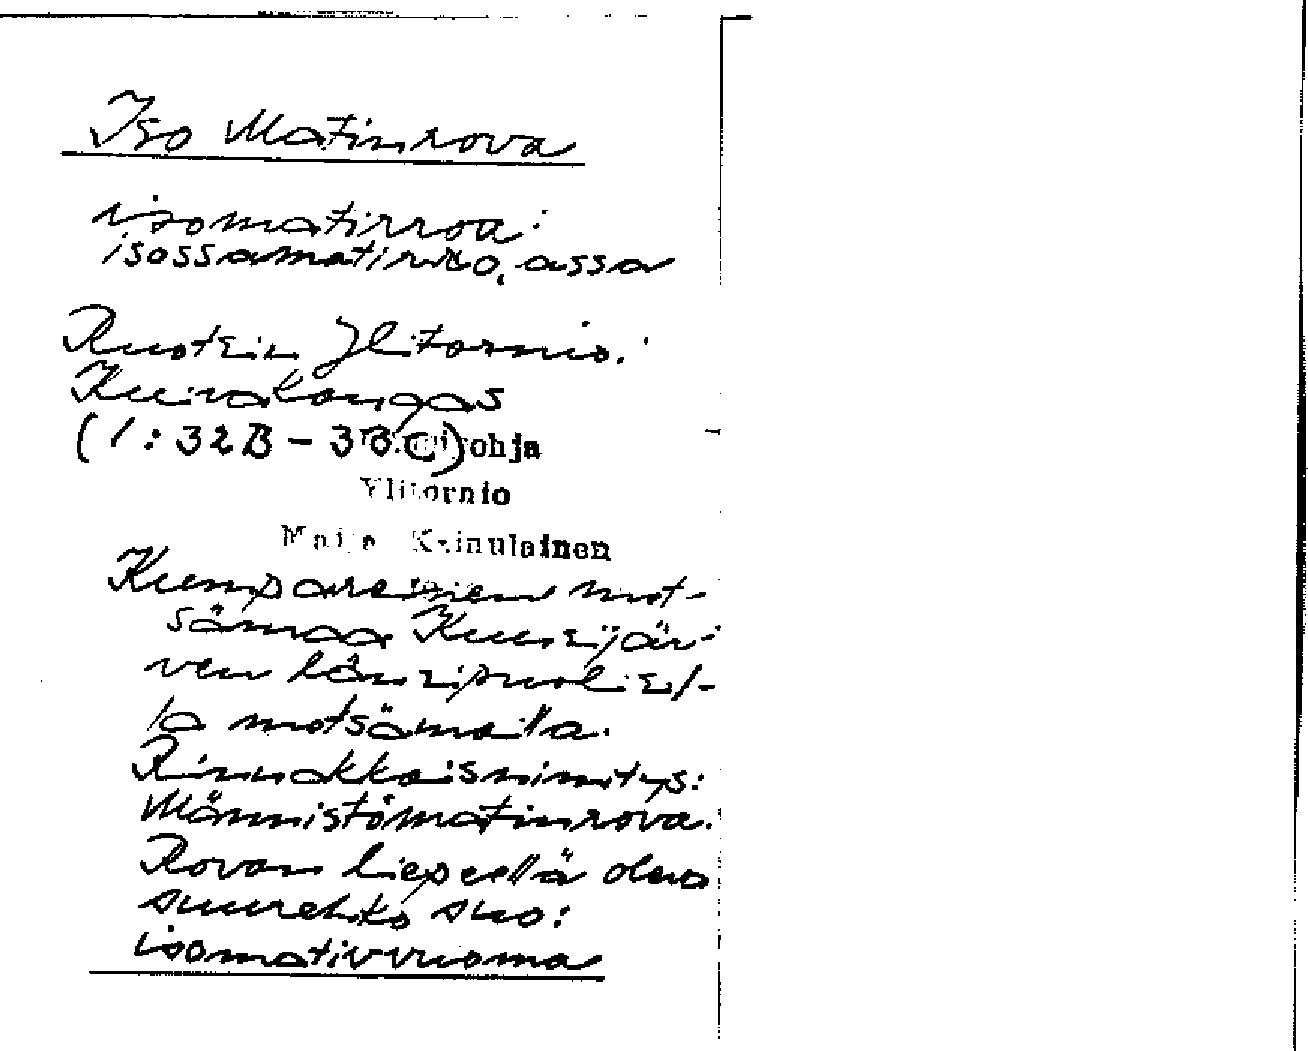 Iso Matinrova
isomatirroa:
isossamatirro, assa
Ruotsin Ylitornio.
Kuivakangas
(1:32B-33C) Tornionpohja
Ylitornio
Maija Keinulainen
Kumpareinen mot-
sämaa Kuusijär-
ven länsipuoliel-
la motsämailla.
Rinnakkaisnimitys:
Männistömatinrova.
Rovan liepeellä oleva
suurehko suo:
isomativvuoma